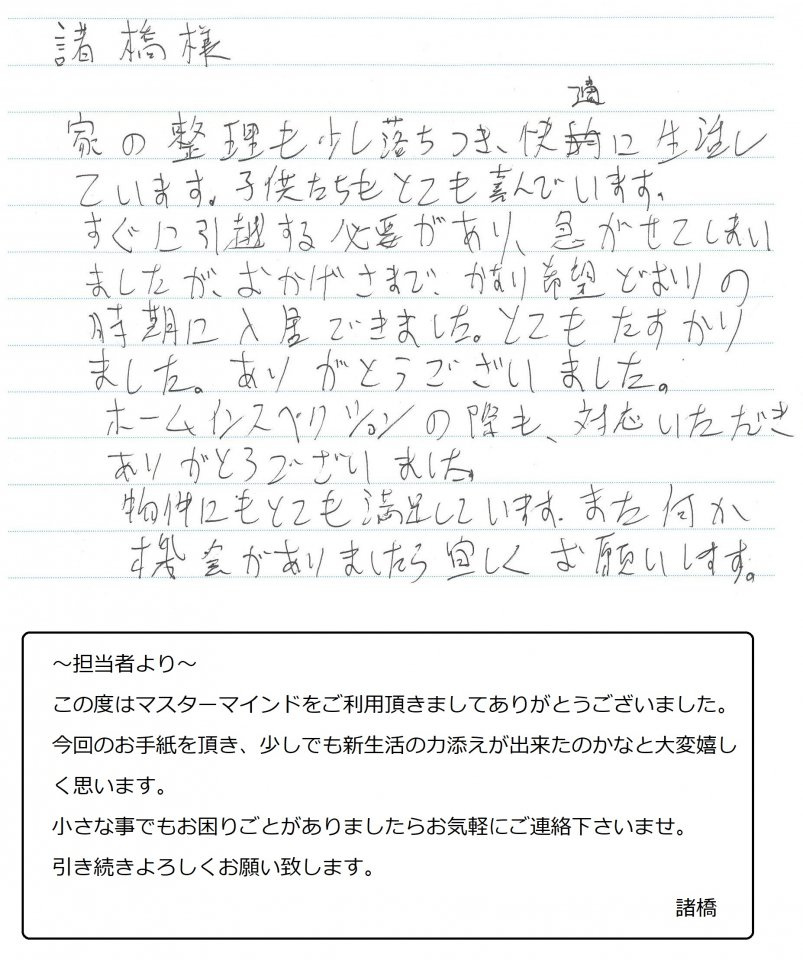 諸橋様
家の整理も少し落ちつき、快適に生活し
ています。子供たちもとても喜んでいます。
すぐに引越する必要があり、急がせてしまい
ましたが、おかげさまで、かなり希望どおりの
時期に入居できました。とてもたすかり
ました。ありがとうございました。
ホームインスペクションの際も、対応いただき
ありがとうございました。
物件にもとても満足しています。また何か
機会がありましたら宜しくお願いします。
～担当者より～
この度はマスターマインドをご利用頂きましてありがとうございました。
今回のお手紙を頂き、少しでも新生活の力添えが出来たのかなと大変嬉し
く思います。
小さな事でもお困りごとがありましたらお気軽にご連絡下さいませ。
引き続きよろしくお願い致します。
諸橋